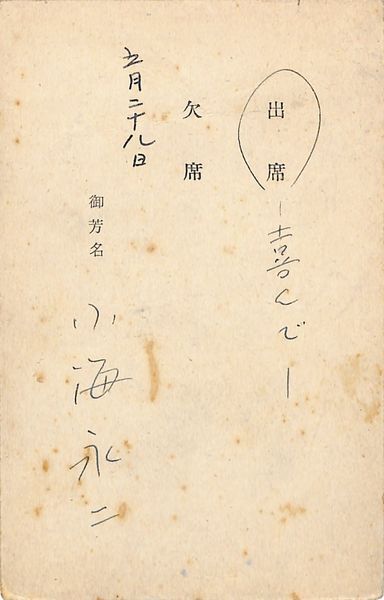 出席 ー喜んでー
欠席
五月二十八日
御芳名
小海永二